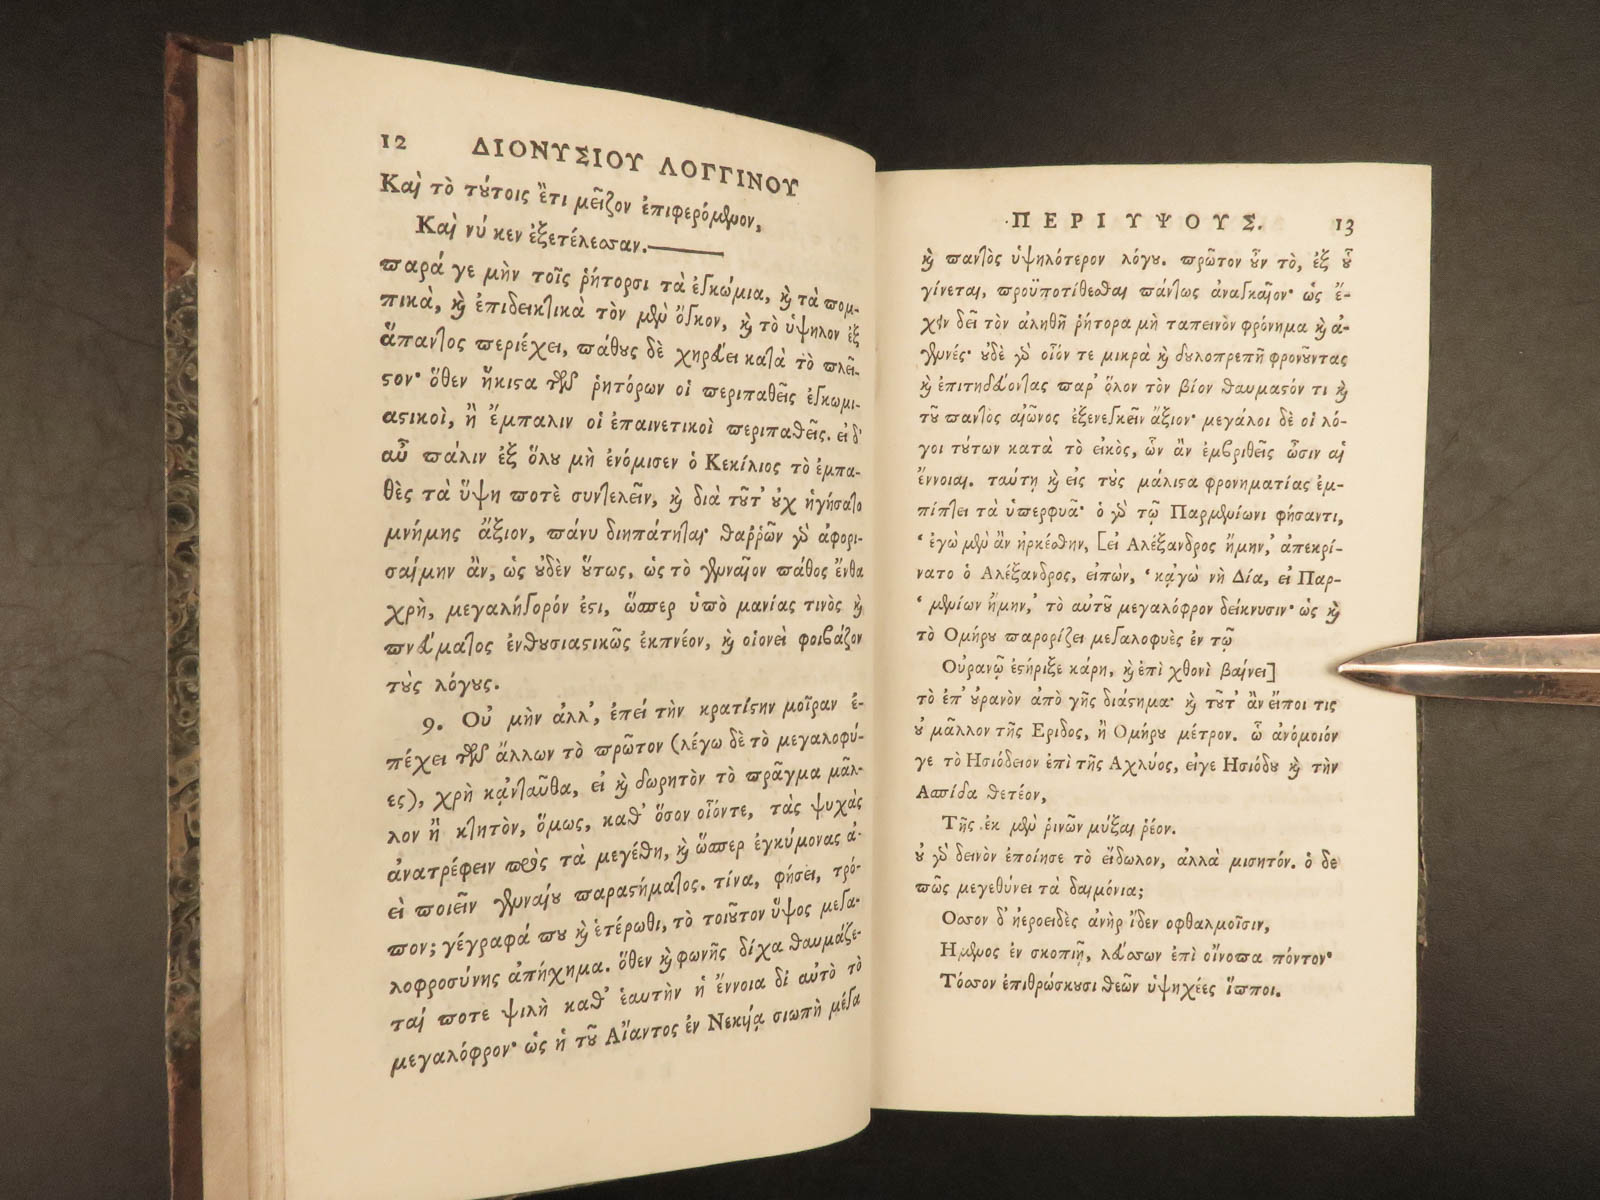 12 ΔΙΟΝΥΣΙΟΥ ΛΟΓΓΙΝΟΥ
Καὶ τὸ τȣ́τοις ἔτι μεῖζον ἐπιφερόμϟμον,
Καὶ νύ κεν ἐξετέλεσσαν.———
παρά γε μὴν τοῖς ῥήτορσι τὰ ἐγκώμια, ϗ τὰ πομ-
πικὰ, ϗ ἐπιδεικτικὰ τὸν μὲν ὄγκον, ϗ τὸ ὑψηλον ἐξ
ἅπαντος περιέχει, πάθȣς δὲ χηρεύει κατὰ τὸ πλεῖ-
ϛον· ὅθεν ἥκιϛα τῶν ῥητόρων οἱ περιπαθεῖς ἐγκωμι-
αϛικοὶ, ἢ ἔμπαλιν οἱ ἐπαινετικοὶ περιπαθεῖς. εἰ δ'
αὖ πάλιν ἐξ ὅλȣ μὴ ἐνόμισεν ὁ Κεκίλιος τὸ ἐμπα-
θὲς τὰ ὕψη ποτὲ συντελεῖν, ϗ διὰ τȣ͂τ' ȣ̓χ ἡγήσατο
μνήμης ἄξιον, πάνυ διηπάτηται· θαῤῥῶν γὰρ ἀφορι-
σαίμην ἂν, ὡς ȣ̓δὲν ȣ̔́τως, ὡς τὸ γενναῖον πάθος ἔνθα
χρὴ, μεγαλήγορόν ἐϛι, ὥσπερ ὑπὸ μανίας τινὸς ϗ
πνεύματος ἐνθυσιαϛικῶς ἐκπνέον, ϗ οἱονεὶ φοιβάζον
τȣ̀ς λόγȣς.
9. Οὐ μὴν ἀλλ', ἐπεὶ τὴν κρατίϛην μοῖραν ἐ-
πέχει τῶν ἄλλων τὸ πρῶτον (λέγω δὲ τὸ μεγαλοφύ-
ες), χρὴ κᾀνταῦθα, εἰ ϗ δωρητὸν τὸ πρᾶγμα μᾶλ-
λον ἢ κτητὸν, ὅμως, καθ' ὅσον οἷόντε, τὰς ψυχὰς
ἀνατρέφειν πρὸς τὰ μεγέθη, ϗ ὥσπερ ἐγκύμονας ἀ-
εὶ ποιεῖν γενναίȣ παραϛήματος. τίνα, φήσει, τρό-
πον; γέγραφά πȣ ϗ ἑτέρωθι, τὸ τοιȣ͂τον ὕψος μεγα-
λοφροσύνης ἀπήχημα. ὅθεν ϗ φωνῆς δίχα θαυμάζε-
ταί ποτε ψιλὴ καθ' ἑαυτὴν ἡ ἔννοια δἰ αὐτὸ τὸ
μεγαλόφρον· ὡς ἡ τȣ͂ Αἴαντος ἐν Νεκυίᾳ σιωπὴ μέγα
ΠΕΡΙ ΥΨΟΥΣ. 13
ϗ παντὸς ὑψηλότερον λόγȣ. πρῶτον ȣ̓͂ν τὸ, ἐξ ȣ̔͂
γίνεται, προϋποτίθεσθαι πάντως ἀναγκαῖον· ὡς ἔ-
χειν δεῖ τὸν ἀληθῆ ῥήτορα μὴ ταπεινὸν φρόνημα ϗ ἀ-
γεννές· ȣ̓δὲ γὰρ οἷόν τε μικρὰ ϗ δȣλοπρεπῆ φρονȣ͂ντας
ϗ ἐπιτηδεύοντας παρ' ὅλον τὸν βίον θαυμαϛόν τι ϗ
τȣ͂ παντὸς αἰῶνος ἐξενεγκεῖν ἄξιον· μεγάλοι δὲ οἱ λό-
γοι τȣ́των κατὰ τὸ εἰκὸς, ὧν ἂν ἐμβριθεῖς ὦσιν αἱ
ἔννοιαι. ταύτῃ ϗ εἰς τȣ̀ς μάλιϛα φρονηματίας ἐμ-
πίπτει τὰ ὑπερφυᾶ· ὁ γὰρ τῷ Παρμενίωνι φήσαντι,
‘ ἐγὼ μὲν ἂν ἠρκέσθην, [εἰ Αλέξανδρος ἤμην,' ἀπεκρί-
νατο ὁ Αλέξανδρος, εἰπὼν, ‘ κᾀγὼ νὴ Δία, εἰ Παρ-
‘ μενίων ἤμην,' τὸ αὐτȣ͂ μεγαλόφρον δείκνυσιν· ὡς ϗ
τὸ Ομήρȣ παρορίζει μεγαλοφυὲς ἐν τῷ
Οὐρανῷ ἐϛήριξε κάρη, ϗ ἐπὶ χθονὶ βαίνει]
τὸ ἐπ' ȣ̓ρανὸν ἀπὸ γῆς διάϛημα· ϗ τȣ͂τ' ἂν εἴποι τις
ȣ̓ μᾶλλον τῆς Εριδος, ἢ Ομήρȣ μέτρον. ᾧ ἀνόμοιόν
γε τὸ Ησιόδειον ἐπὶ τῆς Αχλύος, εἴγε Ησιόδȣ ϗ τὴν
Ασπίδα θετέον,
Τῆς ἐκ μὲν ῥινῶν μύξαι ῥέον.
ȣ̓ γὰρ δεινὸν ἐποίησε τὸ εἴδωλον, ἀλλὰ μισητόν. ὁ δε
πῶς μεγεθύνει τὰ δαιμόνια;
Οσσον δ' ἠεροειδὲς ἀνὴρ ἴδεν οφθαλμοῖσιν,
Ημενος ἐν σκοπιῇ, λεύσσων ἐπὶ οἴνοπα πόντον·
Τόσσον ἐπιθρώσκȣσι θεῶν ὑψηχέες ἵπποι.